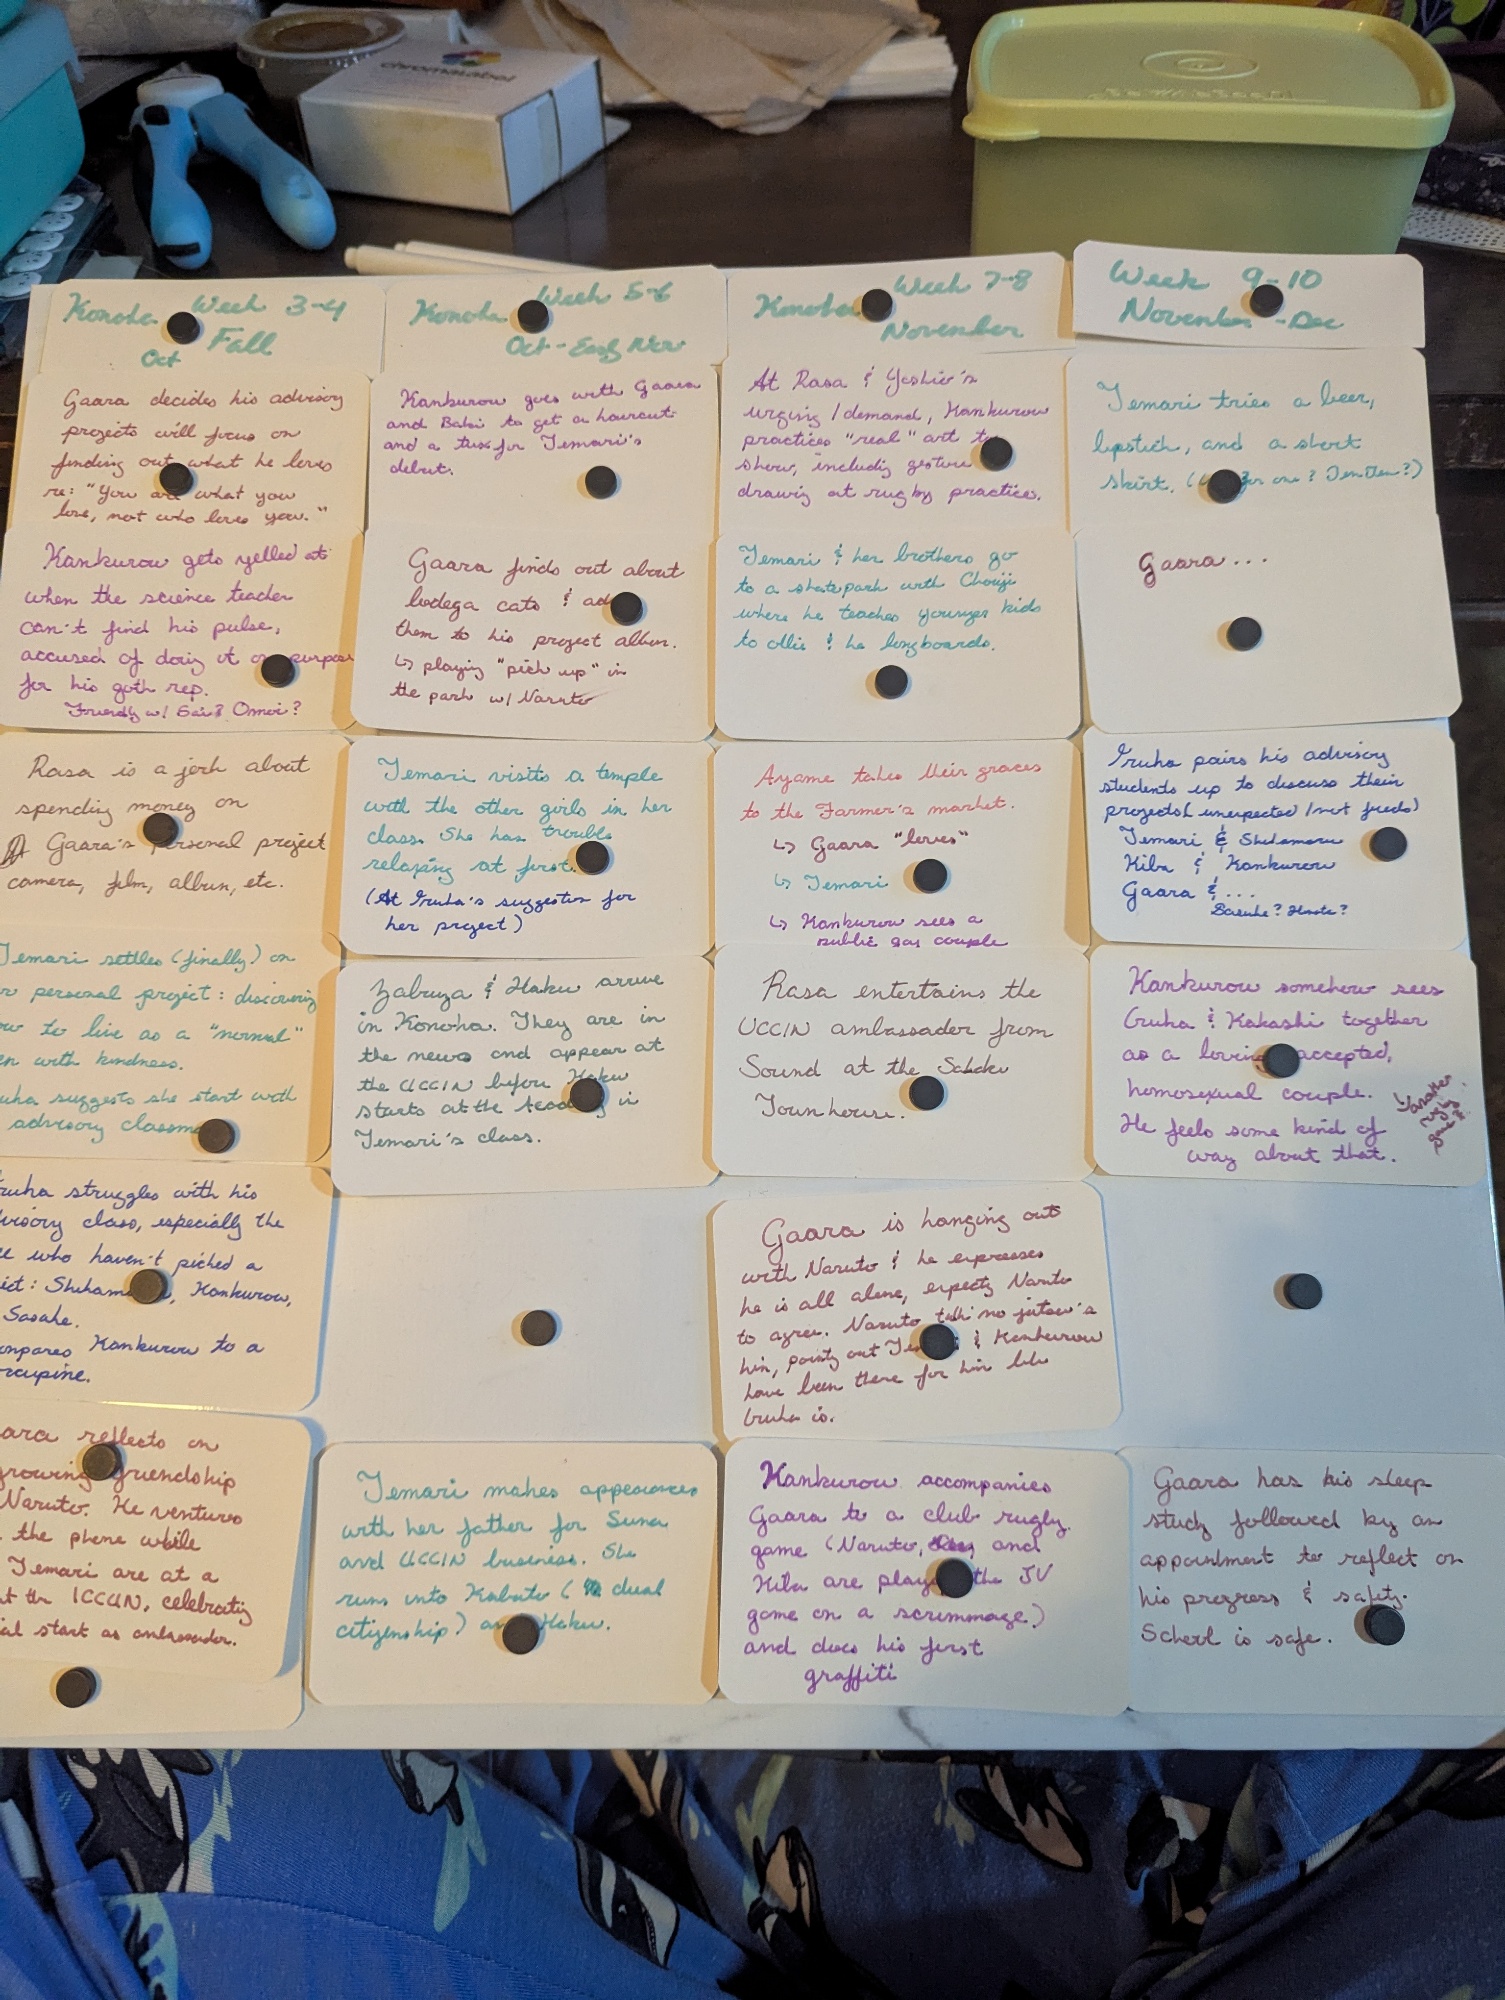 chromalabel
Konoha Week 3-4
Fall
Oct
Gaara decides his advisory
projects will focus on
finding out what he loves
re: "You are what you
love, not who loves you."
Kankurow gets yelled at
when the science teacher
can't find his pulse,
accused of doing it on purpose
for his goth rep.
Friendly w/ Sai? Omoi?
Rasa is a jerk about
spending money on
Gaara's personal project
camera, film, album, etc.
Temari settles (finally) on
personal project: discovering
to live as a "normal"
with kindness.
suggests she start with
advisory
struggles with his
class, especially the
who haven't picked a
Kankurow,
Sasuke.
Kankurow to a
reflects on
growing friendship
Naruto. He ventures
the phone while
Temari are at a
at the ICCUN, celebrating
start as ambassador.
Konoha Week 5-6
Oct - Early Nov
Kankurow goes with Gaara
and Baki to get a haircut
and a tux for Temari's
debut.
Gaara finds out about
bodega cats &
them to his project album.
↳ playing "pick up" in
the park w/ Naruto
Temari visits a temple
with the other girls in her
class. She has trouble
relaxing at first.
(At Iruka's suggestion for
her project)
Zabuza & Haku arrive
in Konoha. They are in
the news and appear at
the UCCIN before Haku
starts at the Academy in
Temari's class.
Temari makes appearances
with her father for Suna
and UCCIN business. She
runs into Kabuto ( dual
citizenship) and Haku.
Konoha Week 7-8
November
At Rasa & Yoshie's
urging / demand, Kankurow
practices "real" art to
show, including gesture
drawing at rugby practice.
Temari & her brothers go
to a skatepark with Chouji
where he teaches younger kids
to ollie & he longboards.
Ayame takes their graces
to the Farmer's market.
↳ Gaara "loves"
↳ Temari
↳ Kankurow sees a
public gay couple
Rasa entertains the
UCCIN ambassador from
Sound at the Sabaku
Townhouse.
Gaara is hanging out
with Naruto & he expresses
he is all alone, expects Naruto
to agree. Naruto talk no jutsu's
him, pointing out Temari & Kankurow
have been there for him like
Iruka is.
Kankurow accompanies
Gaara to a club rugby
game (Naruto, and
Kiba are playing the JV
game on a scrimmage)
and does his first
graffiti
Week 9-10
November - Dec
Temari tries a beer,
lipstick, and a short
skirt. ( for one? TenTen?)
Gaara...
Iruka pairs his advisory
students up to discuss their
projects (unexpected / not friends)
Temari & Shikamaru
Kiba & Kankurow
Gaara & ...
Sasuke? Hinata?
Kankurow somehow sees
Iruka & Kakashi together
as a loving accepted,
homosexual couple.
He feels some kind of
way about that.
↳ another
rugby
game
Gaara has his sleep
study followed by an
appointment to reflect on
his progress & safety.
School is safe.